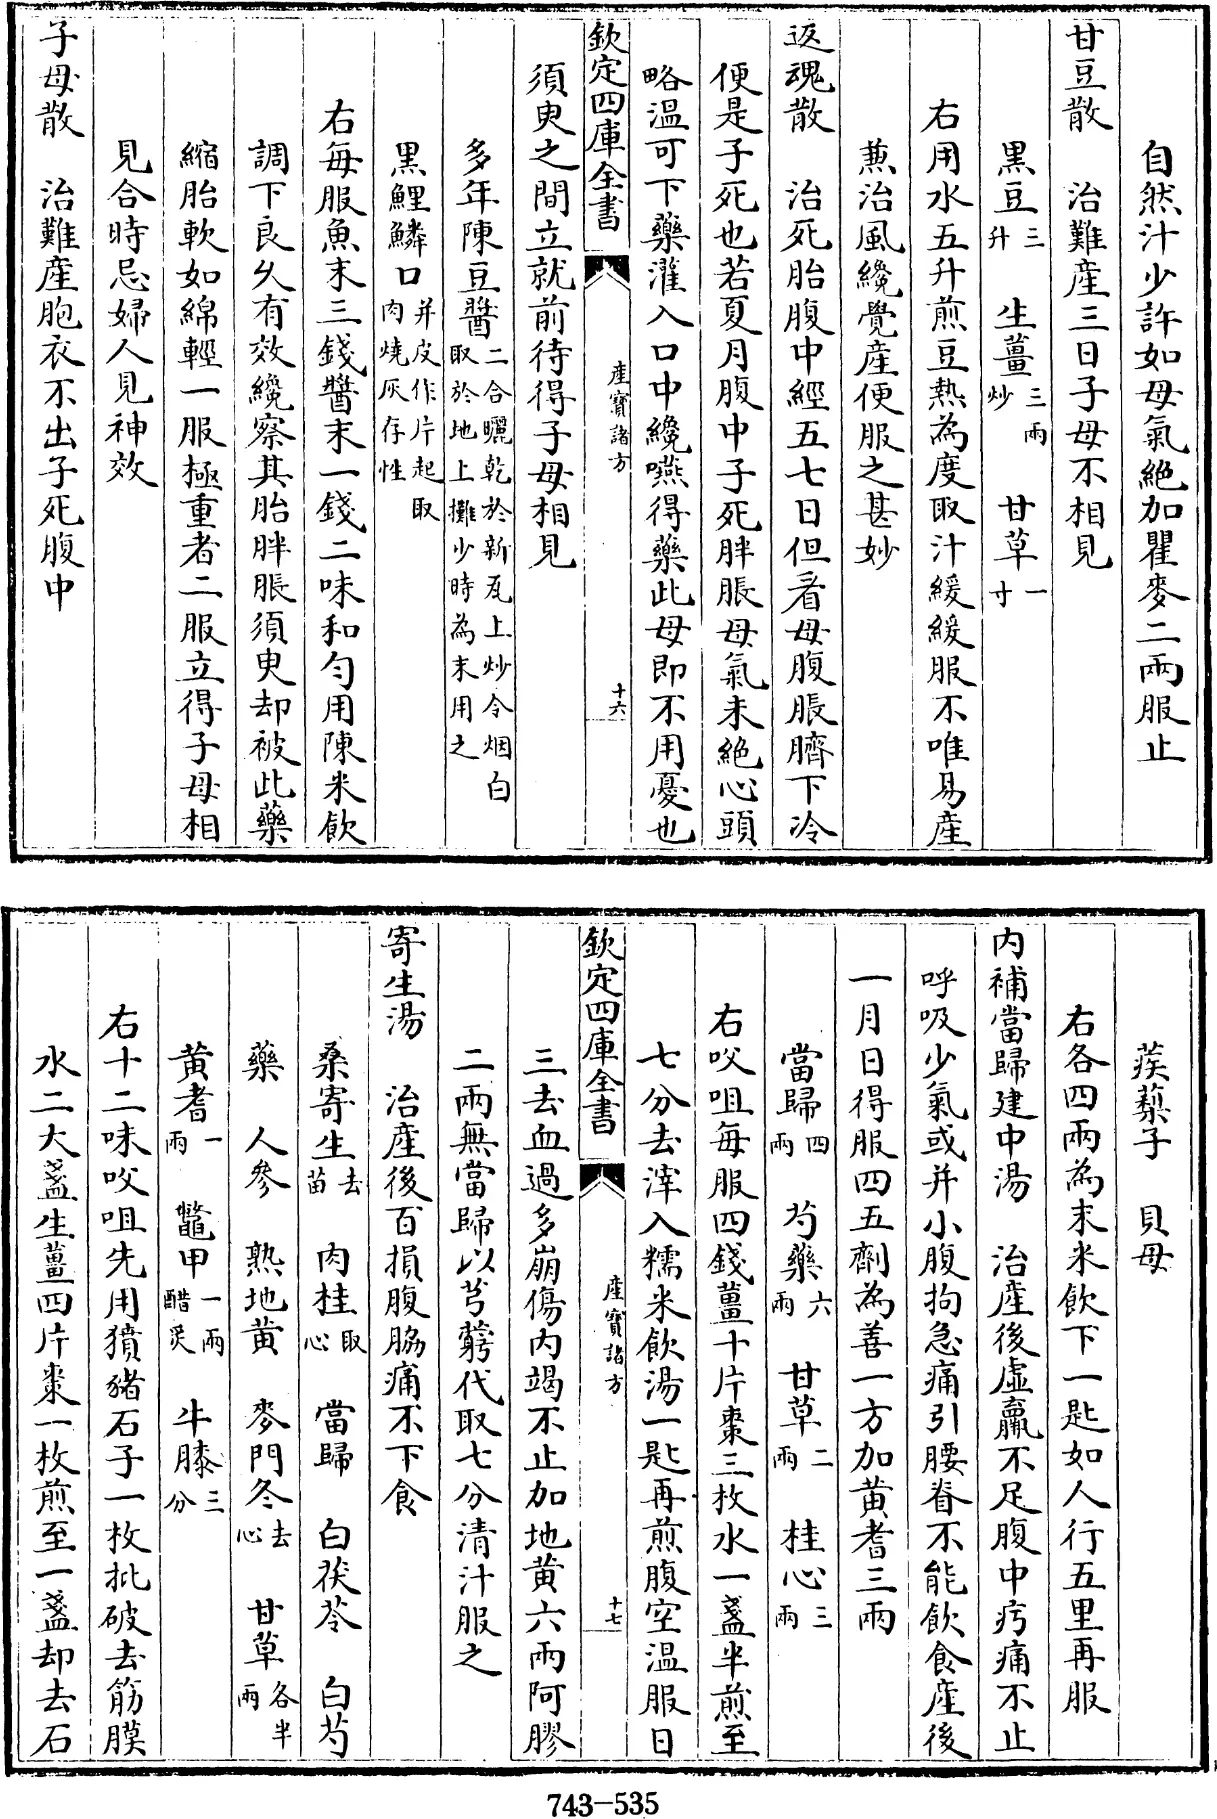 自然汁少許如母氣絶加瞿麥二兩服止
甘豆散　治難産三日子母不相見
黒豆三升　生薑三兩炒　甘草一寸
右用水五升煎豆熟為度取汁緩緩服不唯易産
兼治風纔覺産便服之甚妙
返魂散　治死胎腹中經五七日但看母腹脹臍下冷
便是子死也若夏月腹中子死胖脹母氣未絶心頭
略温可下藥灌入口中纔嚥得藥此母即不用憂也
欽定四庫全書　産寶諸方　十六
須臾之間立就前待得子母相見
多年陳豆醬二合曬乾於新瓦上炒令烟白取於地上攤少時為末用之
黒鯉鱗口并皮作片起取肉燒灰存性
右每服魚末三錢醬末一錢二味和勻用陳米飲
調下良久有效纔察其胎胖脹須臾却被此藥
縮胎軟如綿輕一服極重者二服立得子母相
見合時忌婦人見神效
子母散　治難産胞衣不出子死腹中
蒺蔾子　貝母
右各四兩為末米飲下一匙如人行五里再服
内補當歸建中湯　治産後虛羸不足腹中㽲痛不止
呼吸少氣或并小腹拘急痛引腰脊不能飲食産後
一月日得服四五劑為善一方加黄耆三兩
當歸四兩　芍藥六兩　甘草二兩　桂心三兩
右㕮咀每服四錢薑十片棗三枚水一盞半煎至
七分去滓入糯米飲湯一匙再煎腹空温服日
欽定四庫全書　産寶諸方　十七
三去血過多崩傷内竭不止加地黄六兩阿膠
二兩無當歸以芎藭代取七分清汁服之
寄生湯　治産後百損腹脇痛不下食
桑寄生去苗　肉桂取心　當歸　白茯苓　白芍
藥　人參　熟地黄　麥門冬去心　甘草各半兩
黄耆一兩　鼈甲一兩醋炙　牛膝三分
右十二味㕮咀先用獖豬石子一枚批破去筋膜
水二大盞生薑四片棗一枚煎至一盞却去石
743-535